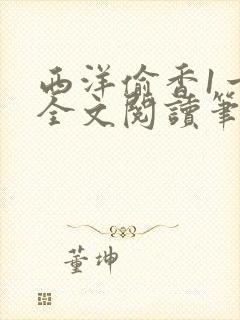 西洋偷香1一
全文閱讀筆
董坤